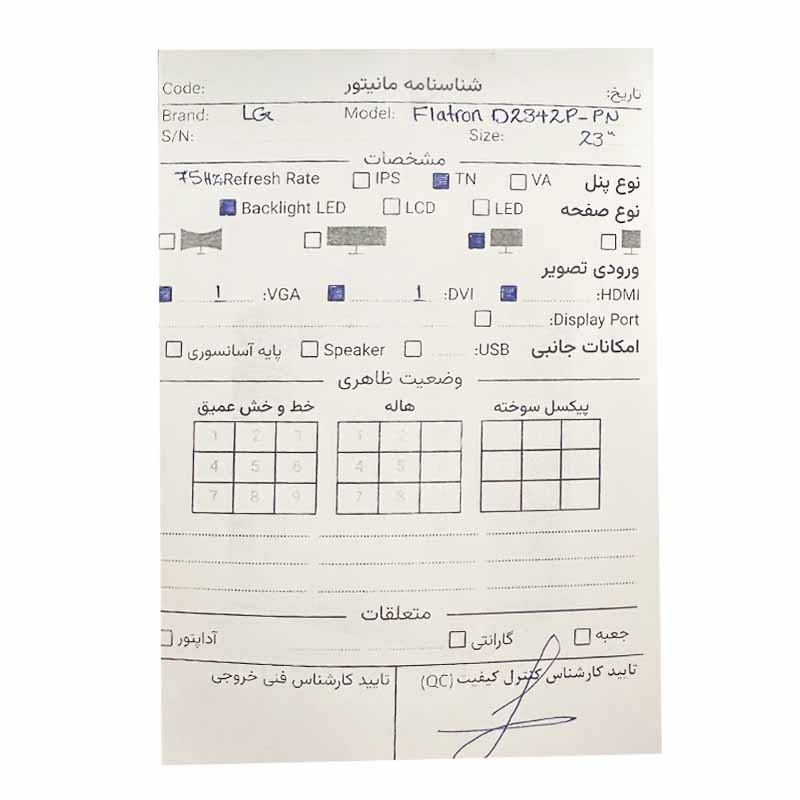 شناسنامه مانیتور
Code: تاریخ:
Brand: LG Model: Flatron D2342P-PN
S/N: Size: 23"
مشخصات
نوع پنل VA TN IPS Refresh Rate 75Hz
نوع صفحه LED LCD Backlight LED
ورودی تصویر
HDMI: DVI: 1 VGA: 1
Display Port:
امکانات جانبی USB: Speaker پایه آسانسوری
وضعیت ظاهری
پیکسل سوخته هاله خط و خش عمیق
1 2 1 2 3
4 5 4 5 6
7 8 7 8 9
متعلقات
جعبه گارانتی آداپتور
تایید کارشناس کنترل کیفیت (QC) تایید کارشناس فنی خروجی